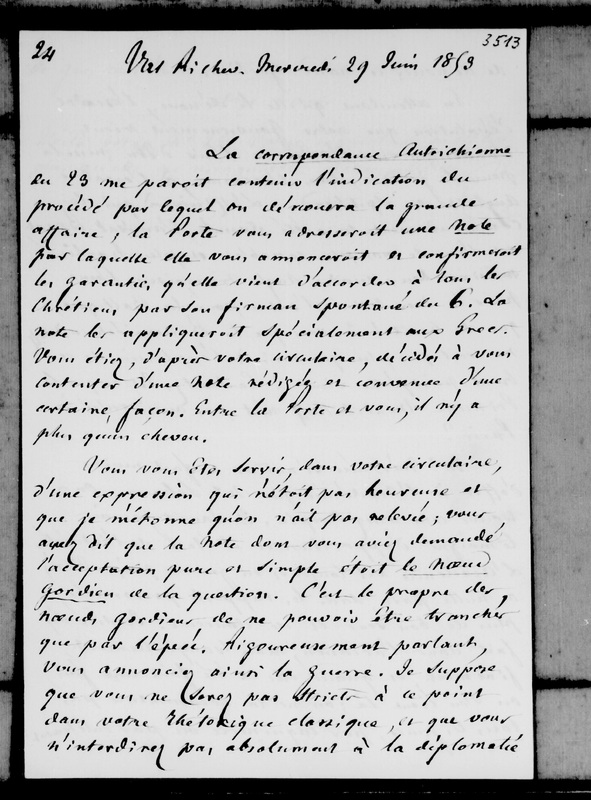 24
3513
Val Richer. Mercredi 29 Juin 1853
La correspondance Autrichienne
du 23 me paroit contenir l'indication du
procédé par lequel on dénouera la grande
affaire ; la Porte vous adresseroit une Note
par laquelle elle vous annonceroit et confirmeroit
les garanties qu'elle vient d'accorder à tous les
Chrétiens par son firman spontané du 6. La
note les appliqueroit spécialement aux Grecs.
Vous étiez, d'après votre circulaire, décidés à vous
contenter d'une Note rédigée et convenue d'une
certaine façon. Entre la Porte et vous, il n'y a
plus qu'un cheveu.
Vous vous êtes servis, dans votre circulaire,
d'une expression qui n'étoit pas heureuse et
que je m'étonne qu'on n'ait pas relevée ; vous
avez dit que la Note dont vous aviez demandé
l'acceptation pure et simple étoit le nœud
Gordien de la question. C'est le propre des
nœuds gordiens de ne pouvoir être tranchés
que par l'épée. Rigoureusement parlant,
vous annonciez ainsi la guerre. Je suppose
que vous ne serez pas stricts à ce point
dans votre Rhétorique classique, et que vous
n'interdirez pas absolument à la diplomatie